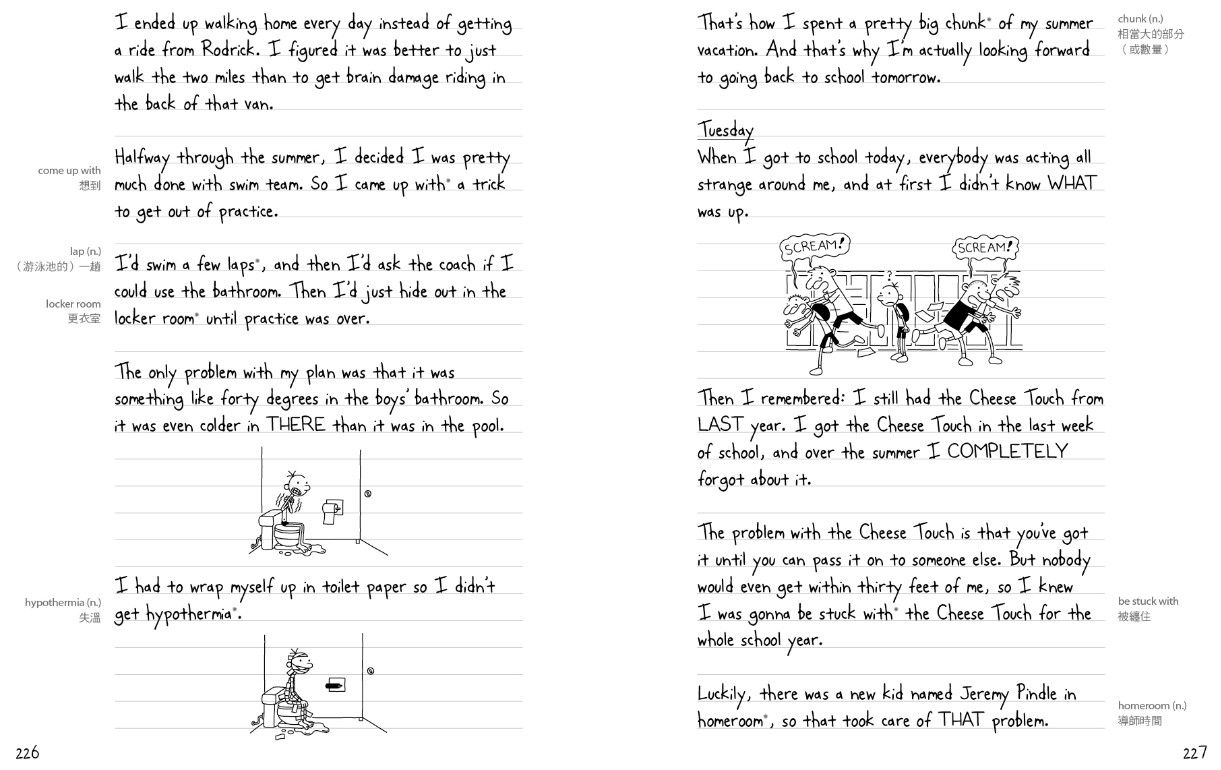 I ended up walking home every day instead of getting
a ride from Rodrick. I figured it was better to just
walk the two miles than to get brain damage riding in
the back of that van.
come up with
想到
Halfway through the summer, I decided I was pretty
much done with swim team. So I came up with* a trick
to get out of practice.
lap (n.)
（游泳池的）一趟
locker room
更衣室
I'd swim a few laps*, and then I'd ask the coach if I
could use the bathroom. Then I'd just hide out in the
locker room* until practice was over.
The only problem with my plan was that it was
something like forty degrees in the boys' bathroom. So
it was even colder in THERE than it was in the pool.
hypothermia (n.)
失溫
I had to wrap myself up in toilet paper so I didn't
get hypothermia*.
226
That's how I spent a pretty big chunk* of my summer
vacation. And that's why I'm actually looking forward
to going back to school tomorrow.
chunk (n.)
相當大的部分
（或數量）
Tuesday
When I got to school today, everybody was acting all
strange around me, and at first I didn't know WHAT
was up.
SCREAM!
?
SCREAM!
Then I remembered: I still had the Cheese Touch from
LAST year. I got the Cheese Touch in the last week
of school, and over the summer I COMPLETELY
forgot about it.
The problem with the Cheese Touch is that you've got
it until you can pass it on to someone else. But nobody
would even get within thirty feet of me, so I knew
I was gonna be stuck with* the Cheese Touch for the
whole school year.
be stuck with
被纏住
Luckily, there was a new kid named Jeremy Pindle in
homeroom*, so that took care of THAT problem.
homeroom (n.)
導師時間
227